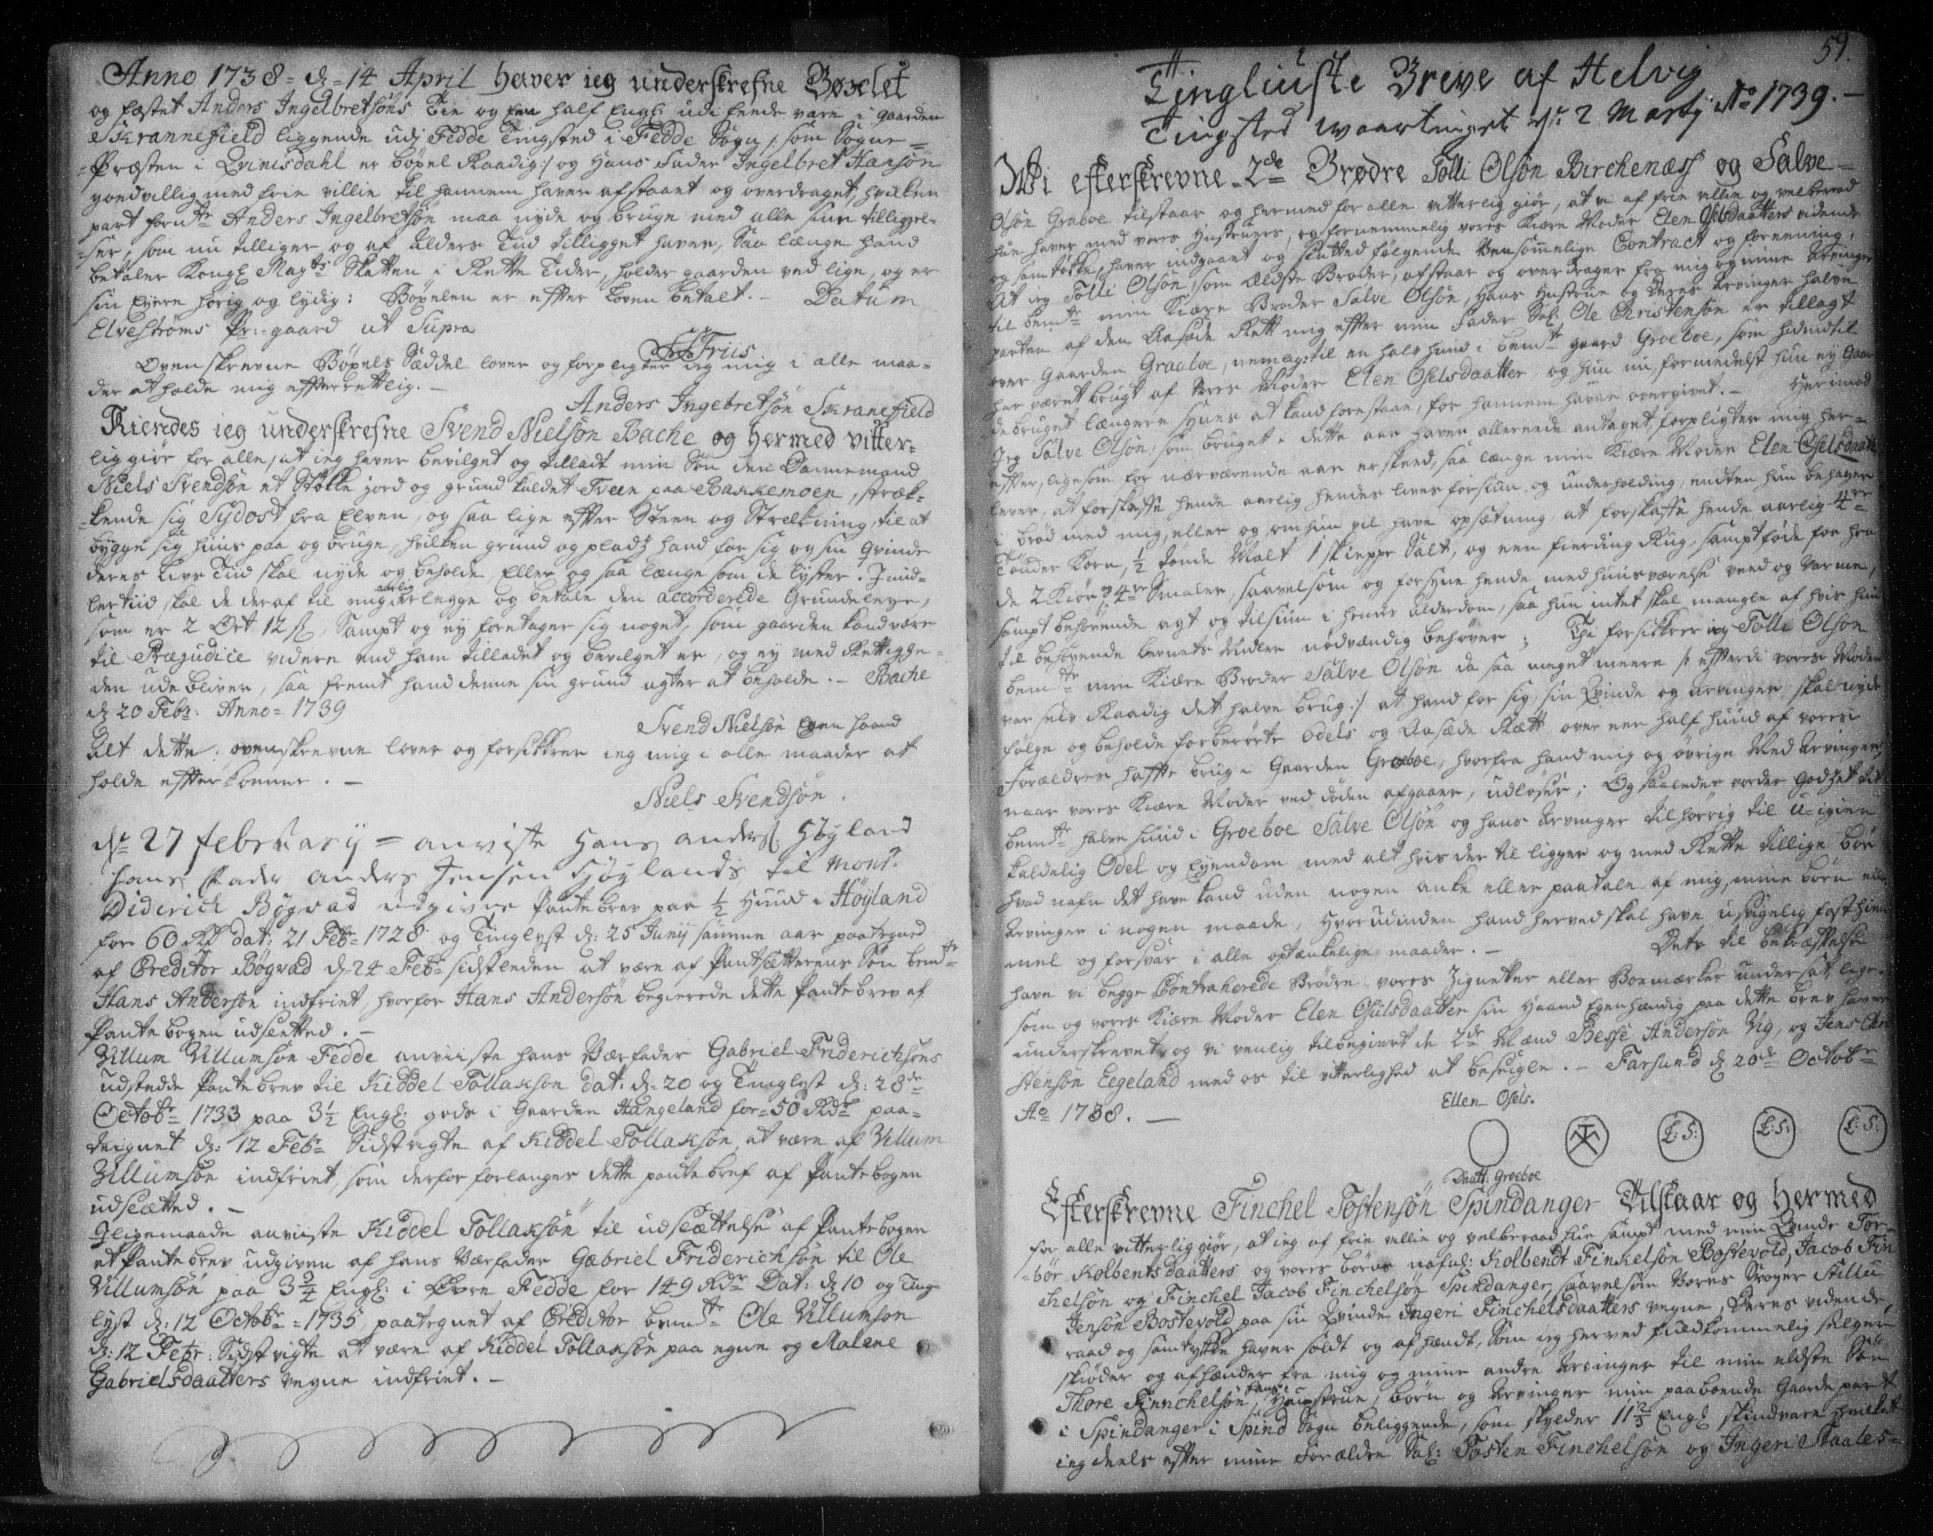 Anno 1738 = d: 14 April haver ieg underskrefne Bøxlet
og fæstet Anders Ingelbretsøns Tie og Een half Engl: udi Eende vare i gaarden
Skrannefield liggende udj Fedde Tingsted i Fedde Sogn /: som Sogne=
=Præsten i Qvinisdahl er bøxel Raadig :/ og Hans Fader Ingelbret Hansøn
goedvillig med frie villie til hannem haver afstaaet og overdraget, hvilken
part fornd:te Anders Ingelbretsøn maa nyde og bruge med alle sine tilliggel-
=ser, som nu tilligger og af Alders Tiid tilligget haver, Saa længe hand
betaler Kongl: Mayts: Skatter i Rette Tider, holder gaarden ved lige, og er
sin Eyere hørig og lydig: Bøxelen er efter loven betalt. – Datum
Elvestrøms Pr: gaard ut Supra
Friis
Ovenskrevne Bøxels Sæddel lover og forpligter ieg mig i alle maa-
der at holde mig efterrettelig. –
Anders Ingebretsøn Skranefield
Kiendes ieg underskrefne Svend Nielsøn Bache og hermed vitter-
lig giør for alle, at ieg haver bevilget og tilladt min Søn den Dannemand
Niels Svendsøn et Støkke jord og grund kaldet Tveen paa Bakkemoen, stræk-
kende sig Sydost fra Elven, og saa lige efter Steen og Strækning, til at
bygge sig Huus paa og bruge, hvilken grund og pladz hand for sig og sin Qvinde
deres livs Tiid skal nyde og beholde Eller og saa længe som de lyster. Imid-
lertiid skal de deraf til mig aarlig erlegge og betale den accorderede Grundeleye,
som er 2 Ort 12 s:, Sampt og ey foretager sig noget, som gaarden kand være
til Præjudice videre end ham tilladet og bevilget er, og ey med Rettighe-
den ude bliver, saa fremt hand denne sin grund agter at beholde. – Bache
d: 20 Febr: Anno = 1739
Svend Nielsøn Egen haand
Alt dette ovenskrevne lover og forsikkrer ieg mig i alle maader at
holde efterkomme. –
Niels Svendsøn.
d: 27 february = anviste Hans anders: Høyland
hans fader anders Jensen Høylands til Mons:r
Diderich Bøgvad udgivne Pantebrev paa ½ Huud i Høyland
for 60 Rd dat: 21 Feb: 1728 og Tinglyst d: 25 Junij samme aar paategned
af Creditor Bøgvad d: 24 Feb: sidstleden at være af Pantsætterens Søn bem:te
Hans Andersøn indfriet, hvorfor Hans Andersøn begierede dette Pantebrev af
Pantebogen udslettet. –
Villum Villumsøn Fedde anviiste hans Værfader Gabriel Friderichsøns
udstedde Pantebrev til Kiddel Tollaksøn dat: d: 20 og Tinglyst d: 28de
Octob: 1733 paa 3½ Engl: gods i Gaarden Hangeland for 50 Rdr paa-
teignet d: 12 Feb: Sidst rigte af Kiddel Tollaksøn, at være af Villum
Villumsøn indfriet, som derfor forlanger dette pantebref af Pantebogen
udslettet. –
Jligemaade anviiste Kiddel Tollaksøn til udslættelse af Pantebogen
et Pantebrev udgiven af hans Værfader Gabriel Friderichsøn til Ole
Villumsøn paa 3¾ Engl: i Øvre Fedde for 149 Rdr Dat: d: 10 og Ting-
lyst d: 12 Octob: 1735, paategnet af Creditor bem:te Ole Villumsøn
d: 12 Febr: Sidst rigte at være af Kiddel Tollaksøn paa egne og Malene
Gabrielsdaatters vegne indfriet. –
59.
Tingliuste Breve af Helvig
Tingsted waartinget d: 2 Martij Ao 1739. –
Wi efterskrevne 2de Brødre Tolli Olsøn Birchenæs og Salve
Olsøn Graboe tilstaar og hermed for alle vitterlig giør, at vi af frie villie og velberaad
hue haver med vores Hustruers, og fornemmelig vores Kiære Moder Elen Oselsdaatters vidende
og samtøkke, haver indgaaet og sluttet følgende Uensommelige Contract og forening,
At ieg Tolli Olsøn, som Ældste Broder, afstaar og overdrager fra mig og mine Arvinger
til bem:te min Kiære Broder Salve Olsøn, hans Hustrue og deres Arvinger halve
parten af den Aasæde Rett mig efter min Fader Sal: Ole Christensøn er tillagt
over Gaarden Graaboe, nemlig: til en halv huud i bem:te gaard Groeboe, som hidindtil
har været brugt af vores Moder Elen Oselsdaatter, og hun nu formedelst hun ey Gaar-
de bruget længere synes at kand forestaae, for hannem haver overgivet. – Herimod
Jeg Salve Olsøn, som bruget i dette aar haver allereede antaget, forpligter mig her-
efter, ligesom for nærværende aar er skeed, saa længe min Kiære Moder Elen Oselsdaatter
lever, at forskaffe hende aarlig hendes livs forsiun og underholding, endten hun behager
i brød med mig, eller og om hun vil have opsætning, at forskaffe hende aarlig 4re
Tønder Korn, ½ tønde Malt 1 Skieppe Salt, og een fierding Rug, sampt føde for hen-
de 2 Kiør og 4re Smaler, saavelsom og forsyne hende med huusværelse, veed og varme,
sampt behørende agt og tilsiun i hendes Alderdom, saa hun intet skal mangle af hvis hun
til behøvende levnets Midler nødvændig behøver; Thi forsikkrer ieg Tolli Olsøn
bem:te min Kiære Broder Salve Olsøn da saa meget meere /: efterdi vores Moder
var selv Raadig det halve brug :/ at hand for sig, sin Qvinde og arvinger, skal nyde
følge og beholde forberørte odels og Aasæde Rætt over een half huud af vores
Forældres hafte brug i Gaarden Groeboe, hvorfra hand mig og øvrige Med Arvinger,
naar vores Kiære Moder ved døden afgaaer, udløser; Og saaledes vorder godzet til
bem:te halve huud i Groeboe Salve Olsøn og hans Arvinger tilhørrig til U-igien
kaldelig Odel og Eyendom med alt hvis der til ligger og med Rette tillige bør
hvad nafn det have kand uden nogen anke eller paatale af mig, mine børn eller
Arvinger i nogen maade, hvorudinden hand herved skal have usvigelig fast hiem-
mel og forsvar i alle optænkelige maader. – Dets til bekræftelse
have vi begge Contraherede Brødre vores Zignetter eller Bomærker undersat, lige-
som og vores Kiære Moder Elen Oselsdaatter sin Haand Egenhændig paa dette brev haver
underskrevet, og vi venlig tilbegiert de 2de Mænd Besse Andersøn Vig, og Jens Chri-
stensøn Eegeland med os til vitterlighed at besegle. – Farsund d: 20de Octobr
Ao 1738. –
Ellen Osels.
L: S: L: S: L: S:
Daatt: Groeboe
Efterskrevne Finchel Tostensøn Spindanger Tilstaar og hermed
for alle vitterlig giør, at ieg af frie villie og velberaad hue sampt med min Qvinde Tor-
bør Kolbentsdaatters og vores børns nafnl: Kolbendt Finkelsøn Bostevold, Jacob Fin
kelsøn og Finchel Jacob Finchelsøn Spindanger, saavelsom Vores Svoger Stillu
Jensøn Bostevold paa sin Qvinde Ingeri Finchelsdaatters vegne, deres vidende,
raad og samtykke haver soldt og afhændt, Som ieg herved fuldkommelig selger
skiøder og afhænder fra mig og mine andre Arvinger til min eldste Søn
Thore Finnchelsøn, hans Hustrue, børn og Arvinger min paaboende Gaardepart
i Spindanger i Spind Sogn beliggende, som skylder 11⅔ Engl: skindvare hvilket
ieg deels efter mine Forældre Sal: Tosten Finchelsøn og Ingeri Staales-